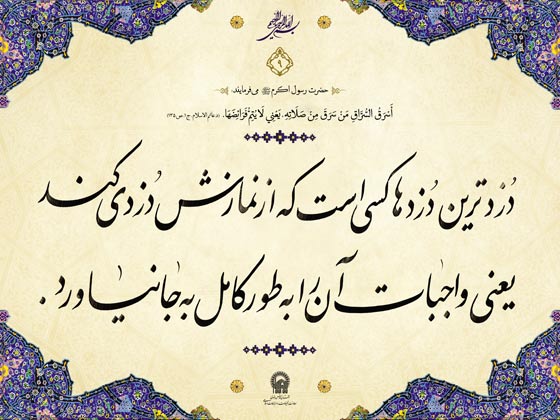 بسم الله الرحمن الرحیم
۹
حضرت رسول اکرم ﷺ می‌فرمایند:
أَسْرَقُ السُّرَّاقِ مَنْ سَرَقَ مِنْ صَلَاتِهِ، یَعْنِي لَا یُتِمُّ فَرَائِضَهَا. (دعائم الاسلام، ج۱، ص۱۳۵)
دزدترین دزدها کسی است که از نمازش دزدی کند
یعنی واجبات آن را به طور کامل به جا نیاورد.